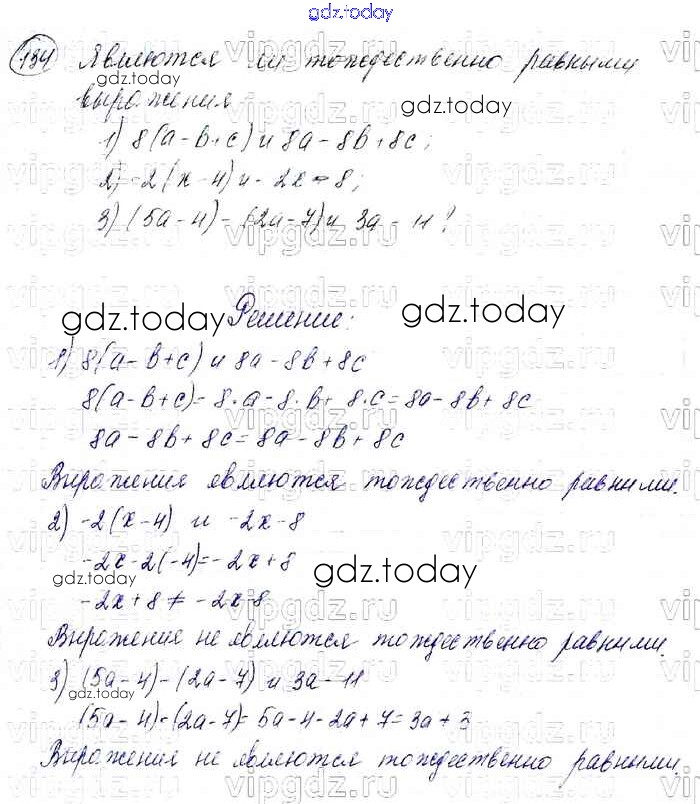 gdz.today
134 Являются ли тождественно равными
gdz.today
выражения
1) 8(a-b+c) и 8a-8b+8c;
2) -2(x-4) и -2x-8;
3) (5a-4)-(2a-7) и 3a-11?
gdz.today Решение: gdz.today
1) 8(a-b+c) и 8a-8b+8c
8(a-b+c)=8·a-8·b+8·c=8a-8b+8c
8a-8b+8c=8a-8b+8c
Выражения являются тождественно равними.
2) -2(x-4) и -2x-8
-2x-2(-4)=-2x+8
gdz.today gdz.today
-2x+8≠-2x-8
Выражение не являются тождественно равными.
3) (5a-4)-(2a-7) и 3a-11
gdz.today
(5a-4)-(2a-7)=5a-4-2a+7=3a+3
Выражения не являются тождественно равными.
vipgdz.ru